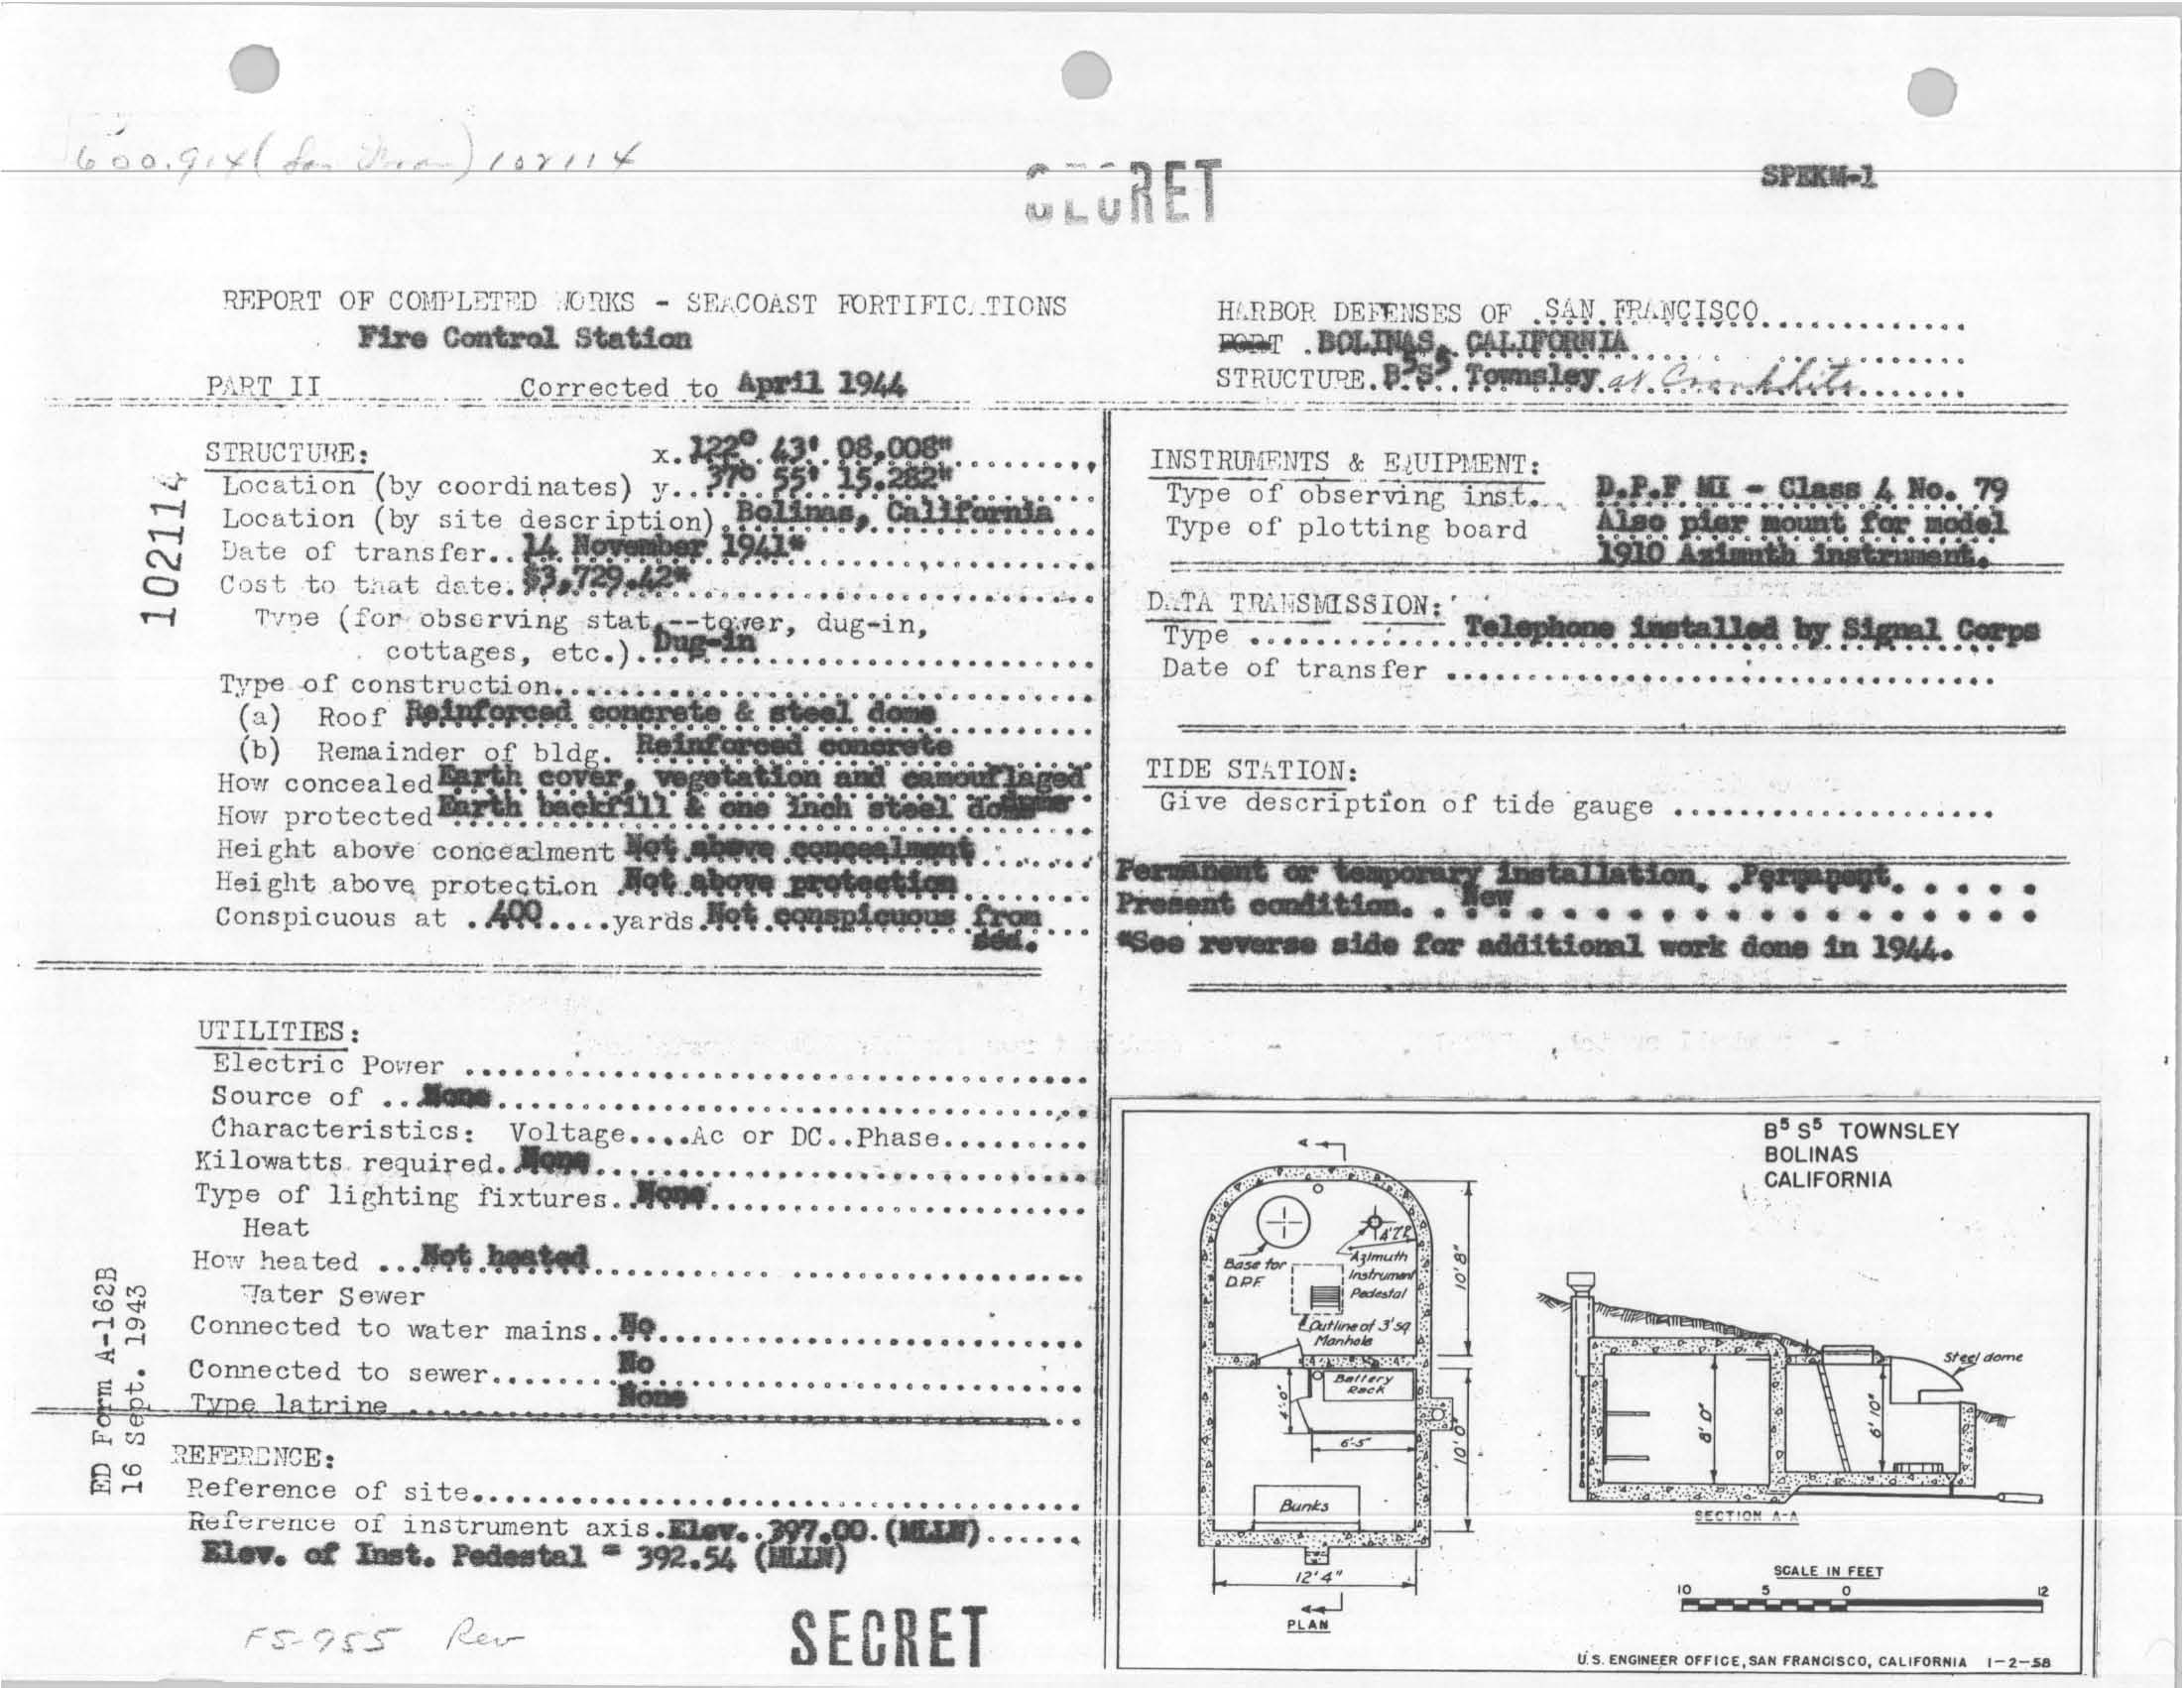 600.914 (San Fran) 102114
SECRET
SPEKM-1
REPORT OF COMPLETED WORKS - SEACOAST FORTIFICATIONS
Fire Control Station
PART II Corrected to April 1944
HARBOR DEFENSES OF SAN FRANCISCO
FORT BOLINAS, CALIFORNIA
STRUCTURE B5S5 Townsley at Cronkhite
102114
STRUCTURE: x. 122° 43' 08.008"
Location (by coordinates) y.. 37° 55' 15.282"
Location (by site description) Bolinas, California
Date of transfer.. 14 November 1941*
Cost to that date. $3,729.42*
Type (for observing stat.--tower, dug-in,
cottages, etc.). Dug-in
Type of construction
(a) Roof Reinforced concrete & steel dome
(b) Remainder of bldg. Reinforced concrete
How concealed Earth cover, vegetation and camouflaged
How protected Earth backfill & one inch steel dome
Height above concealment Not above concealment
Height above protection Not above protection
Conspicuous at .400....yards. Not conspicuous from
sea.
UTILITIES:
Electric Power
Source of .. None
Characteristics: Voltage....Ac or DC..Phase
Kilowatts required. None
Type of lighting fixtures.. None
Heat
How heated ... Not heated
Water Sewer
Connected to water mains.. No
Connected to sewer No
Type latrine None
REFERENCE:
Reference of site
Reference of instrument axis. Elev. 397.00 (MLLW)
Elev. of Inst. Pedestal = 392.54 (MLLW)
ED Form A-162B
16 Sept. 1943
FS-955 Rev
SECRET
INSTRUMENTS & EQUIPMENT:
Type of observing inst... D.P.F MI - Class 4 No. 79
Type of plotting board Also pier mount for model
1910 Azimuth instrument.
DATA TRANSMISSION:
Type Telephone installed by Signal Corps
Date of transfer
TIDE STATION:
Give description of tide gauge
Permanent or temporary installation. .Permanent.
Present condition. . New
*See reverse side for additional work done in 1944.
B5 S5 TOWNSLEY
BOLINAS
CALIFORNIA
Base for
D.P.F.
Azimuth
Instrument
Pedestal
Outline of 3' sq
Manhole
10'8"
Battery
Rack
4'-0"
6'-5"
10'0"
Bunks
12'4"
PLAN
Steel dome
8'0"
6'10"
SECTION A-A
SCALE IN FEET
10 5 0 12
U.S. ENGINEER OFFICE, SAN FRANCISCO, CALIFORNIA 1-2-58